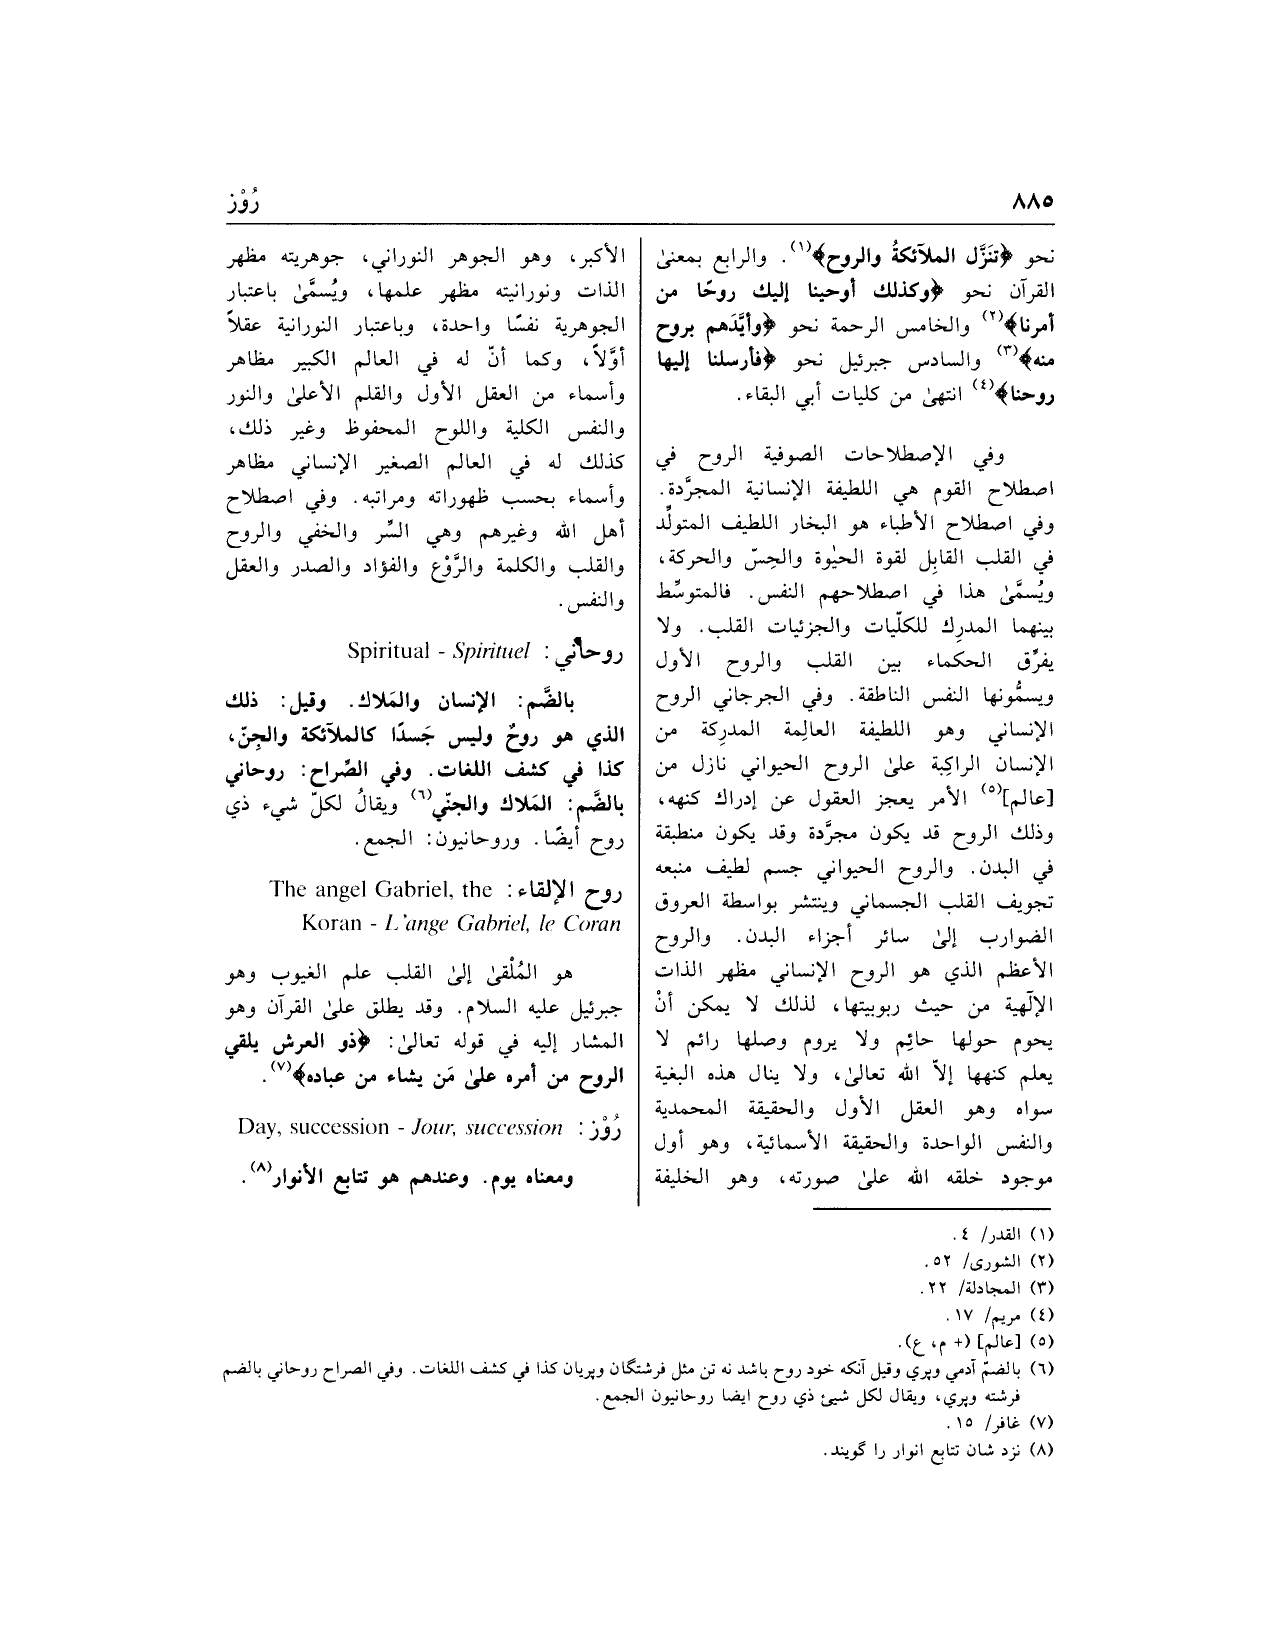 ٨٨٥
رُوْز
نحو ﴿تنَزَّل الملآئكةُ والروح﴾(١). والرابع بمعنىٰ
القرآن نحو ﴿وكذلك أوحينا إليك روحًا من
أمرنا﴾(٢) والخامس الرحمة نحو ﴿وأيَّدَهم بروح
منه﴾(٣) والسادس جبرئيل نحو ﴿فأرسلنا إليها
روحنا﴾(٤) انتهىٰ من كليات أبي البقاء.
وفي الإصطلاحات الصوفية الروح في
اصطلاح القوم هي اللطيفة الإنسانية المجرَّدة.
وفي اصطلاح الأطباء هو البخار اللطيف المتولِّد
في القلب القابِل لقوة الحيٰوة والحِسّ والحركة،
ويُسمَّىٰ هذا في اصطلاحهم النفس. فالمتوسِّط
بينهما المدرِك للكلّيات والجزئيات القلب. ولا
يفرِّق الحكماء بين القلب والروح الأول
ويسمُّونها النفس الناطقة. وفي الجرجاني الروح
الإنساني وهو اللطيفة العالِمة المدرِكة من
الإنسان الراكِبة علىٰ الروح الحيواني نازل من
[عالم](٥) الأمر يعجز العقول عن إدراك كنهه،
وذلك الروح قد يكون مجرَّدة وقد يكون منطبقة
في البدن. والروح الحيواني جسم لطيف منبعه
تجويف القلب الجسماني وينتشر بواسطة العروق
الضوارب إلىٰ سائر أجزاء البدن. والروح
الأعظم الذي هو الروح الإنساني مظهر الذات
الإلٓهية من حيث ربوبيتها، لذلك لا يمكن أنْ
يحوم حولها حائِم ولا يروم وصلها رائم لا
يعلم كنهها إلاّ الله تعالىٰ، ولا ينال هذه البغية
سواه وهو العقل الأول والحقيقة المحمدية
والنفس الواحدة والحقيقة الأسمائية، وهو أول
موجود خلقه الله علىٰ صورته، وهو الخليفة
الأكبر، وهو الجوهر النوراني، جوهريته مظهر
الذات ونورانيته مظهر علمها، ويُسمَّىٰ باعتبار
الجوهرية نفسًا واحدة، وباعتبار النورانية عقلاً
أوَّلاً، وكما أنّ له في العالم الكبير مظاهر
وأسماء من العقل الأول والقلم الأعلىٰ والنور
والنفس الكلية واللوح المحفوظ وغير ذلك،
كذلك له في العالم الصغير الإنساني مظاهر
وأسماء بحسب ظهوراته ومراتبه. وفي اصطلاح
أهل الله وغيرهم وهي السِّر والخفي والروح
والقلب والكلمة والرَّوْع والفؤاد والصدر والعقل
والنفس.
روحاني: Spiritual - Spirituel
بالضَّم: الإنسان والمَلاك. وقيل: ذلك
الذي هو روحٌ وليس جَسدًا كالملآئكة والجِنّ،
كذا في كشف اللغات. وفي الصِّراح: روحاني
بالضَّم: المَلاك والجنّي(٦) ويقالُ لكلّ شيء ذي
روح أيضًا. وروحانيون: الجمع.
روح الإلقاء: The angel Gabriel, the
Koran - L'ange Gabriel, le Coran
هو المُلْقىٰ إلىٰ القلب علم الغيوب وهو
جبرئيل عليه السلام. وقد يطلق علىٰ القرآن وهو
المشار إليه في قوله تعالىٰ: ﴿ذو العرش يلقي
الروح من أمره علىٰ مَن يشاء من عباده﴾(٧).
رُوْز: Day, succession - Jour, succession
ومعناه يوم. وعندهم هو تتابع الأنوار(٨).
(١) القدر/ ٤.
(٢) الشورى/ ٥٢.
(٣) المجادلة/ ٢٢.
(٤) مريم/ ١٧.
(٥) [عالم] (+ م، ع).
(٦) بالضمّ آدمي وپري وقيل آنكه خود روح باشد نه تن مثل فرشتگان وپريان كذا في كشف اللغات. وفي الصراح روحاني بالضم
فرشته وپري، ويقال لكل شيئ ذي روح ايضا روحانيون الجمع.
(٧) غافر/ ١٥.
(٨) نزد شان تتابع انوار را گويند.